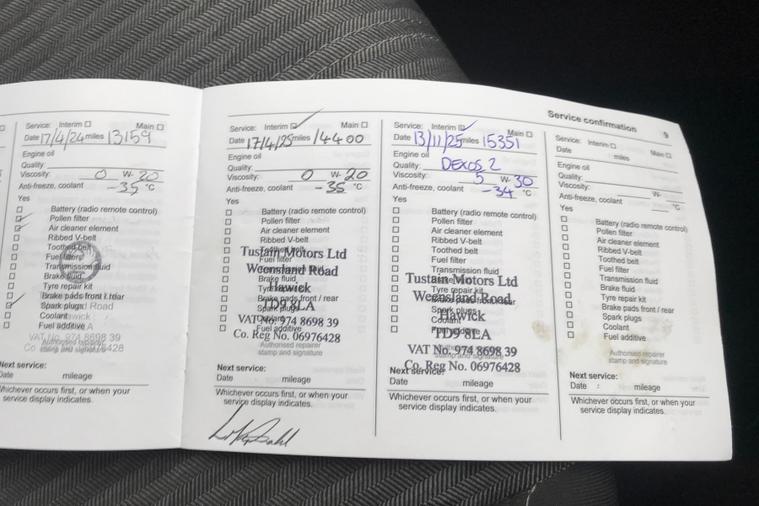 Service confirmation 9
Service: Interim Main
Date 17/4/24 miles 13159
Engine oil
Quality:
Viscosity: 0 W- 20
Anti-freeze, coolant -35 °C
Yes
Battery (radio remote control)
Pollen filter
Air cleaner element
Ribbed V-belt
Toothed belt
Fuel filter
Transmission fluid
Brake fluid
Tyre repair kit
Brake pads front / rear
Spark plugs
Coolant
Fuel additive
VAT No. 974 8698 39
Co. Reg No. 06976428
Authorised repairer
stamp and signature
Next service:
Date mileage
Whichever occurs first, or when your
service display indicates.
Service: Interim Main
Date 17/4/25 miles 14400
Engine oil
Quality:
Viscosity: 0 W- 20
Anti-freeze, coolant -35 °C
Yes
Battery (radio remote control)
Pollen filter
Air cleaner element
Ribbed V-belt
Toothed belt
Fuel filter
Tustain Motors Ltd
Weensland Road
Brake fluid
Hawick
Brake pads front / rear
TD9 8LA
Spark plugs
VAT No. 974 8698 39
Fuel additive
Co. Reg No. 06976428
Authorised repairer
stamp and signature
Next service:
Date mileage
Whichever occurs first, or when your
service display indicates.
Service: Interim Main
Date 13/11/25 miles 15351
Engine oil
Quality: DEXOS 2
Viscosity: 5 W- 30
Anti-freeze, coolant -34 °C
Yes
Battery (radio remote control)
Pollen filter
Air cleaner element
Ribbed V-belt
Toothed belt
Fuel filter
Transmission fluid
Tustain Motors Ltd
Tyre repair kit
Weensland Road
Hawick
Coolant
TD9 8LA
VAT No. 974 8698 39
stamp and signature
Co. Reg No. 06976428
Next service:
Date mileage
Whichever occurs first, or when your
service display indicates.
Service: Interim Main
Date miles
Engine oil
Quality:
Viscosity: W-
Anti-freeze, coolant °C
Yes
Battery (radio remote control)
Pollen filter
Air cleaner element
Ribbed V-belt
Toothed belt
Fuel filter
Transmission fluid
Brake fluid
Tyre repair kit
Brake pads front / rear
Spark plugs
Coolant
Fuel additive
Authorised repairer
stamp and signature
Next service:
Date : mileage
Whichever occurs first, or when your
service display indicates.